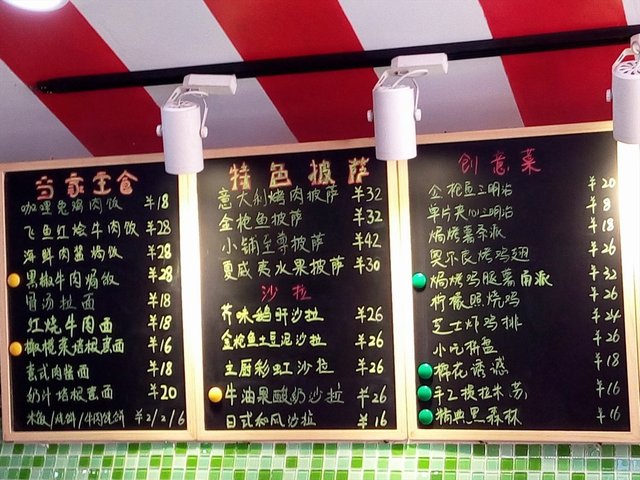 当家主食
咖喱鸡肉饭 ¥18
飞鱼红烩牛肉饭 ¥28
海鲜肉酱焗饭 ¥28
黑椒牛肉焗饭 ¥28
骨汤拉面 ¥18
红烧牛肉面 ¥18
橄榄菜培根意面 ¥16
意式肉酱面 ¥18
奶汁培根意面 ¥20
米饭/ /牛肉 ¥2/2/6
特色披萨
意大利烤肉披萨 ¥32
金枪鱼披萨 ¥32
小铺至尊披萨 ¥42
夏威夷水果披萨 ¥30
沙拉
芥味鹅肝沙拉 ¥26
金枪鱼土豆泥沙拉 ¥26
主厨彩虹沙拉 ¥26
牛油果酸奶沙拉 ¥26
日式和风沙拉 ¥16
创意菜
金枪鱼三明治 ¥20
单片夹心三明治 ¥8
焗烤薯条派 ¥18
奥尔良烤鸡翅 ¥26
焗烤鸡腿薯角派 ¥32
柠檬照烧鸡 ¥26
芝士炸鸡排 ¥24
小吃拼盘 ¥26
棉花诱惑 ¥18
手工提拉米苏 ¥16
精典黑森林 ¥16